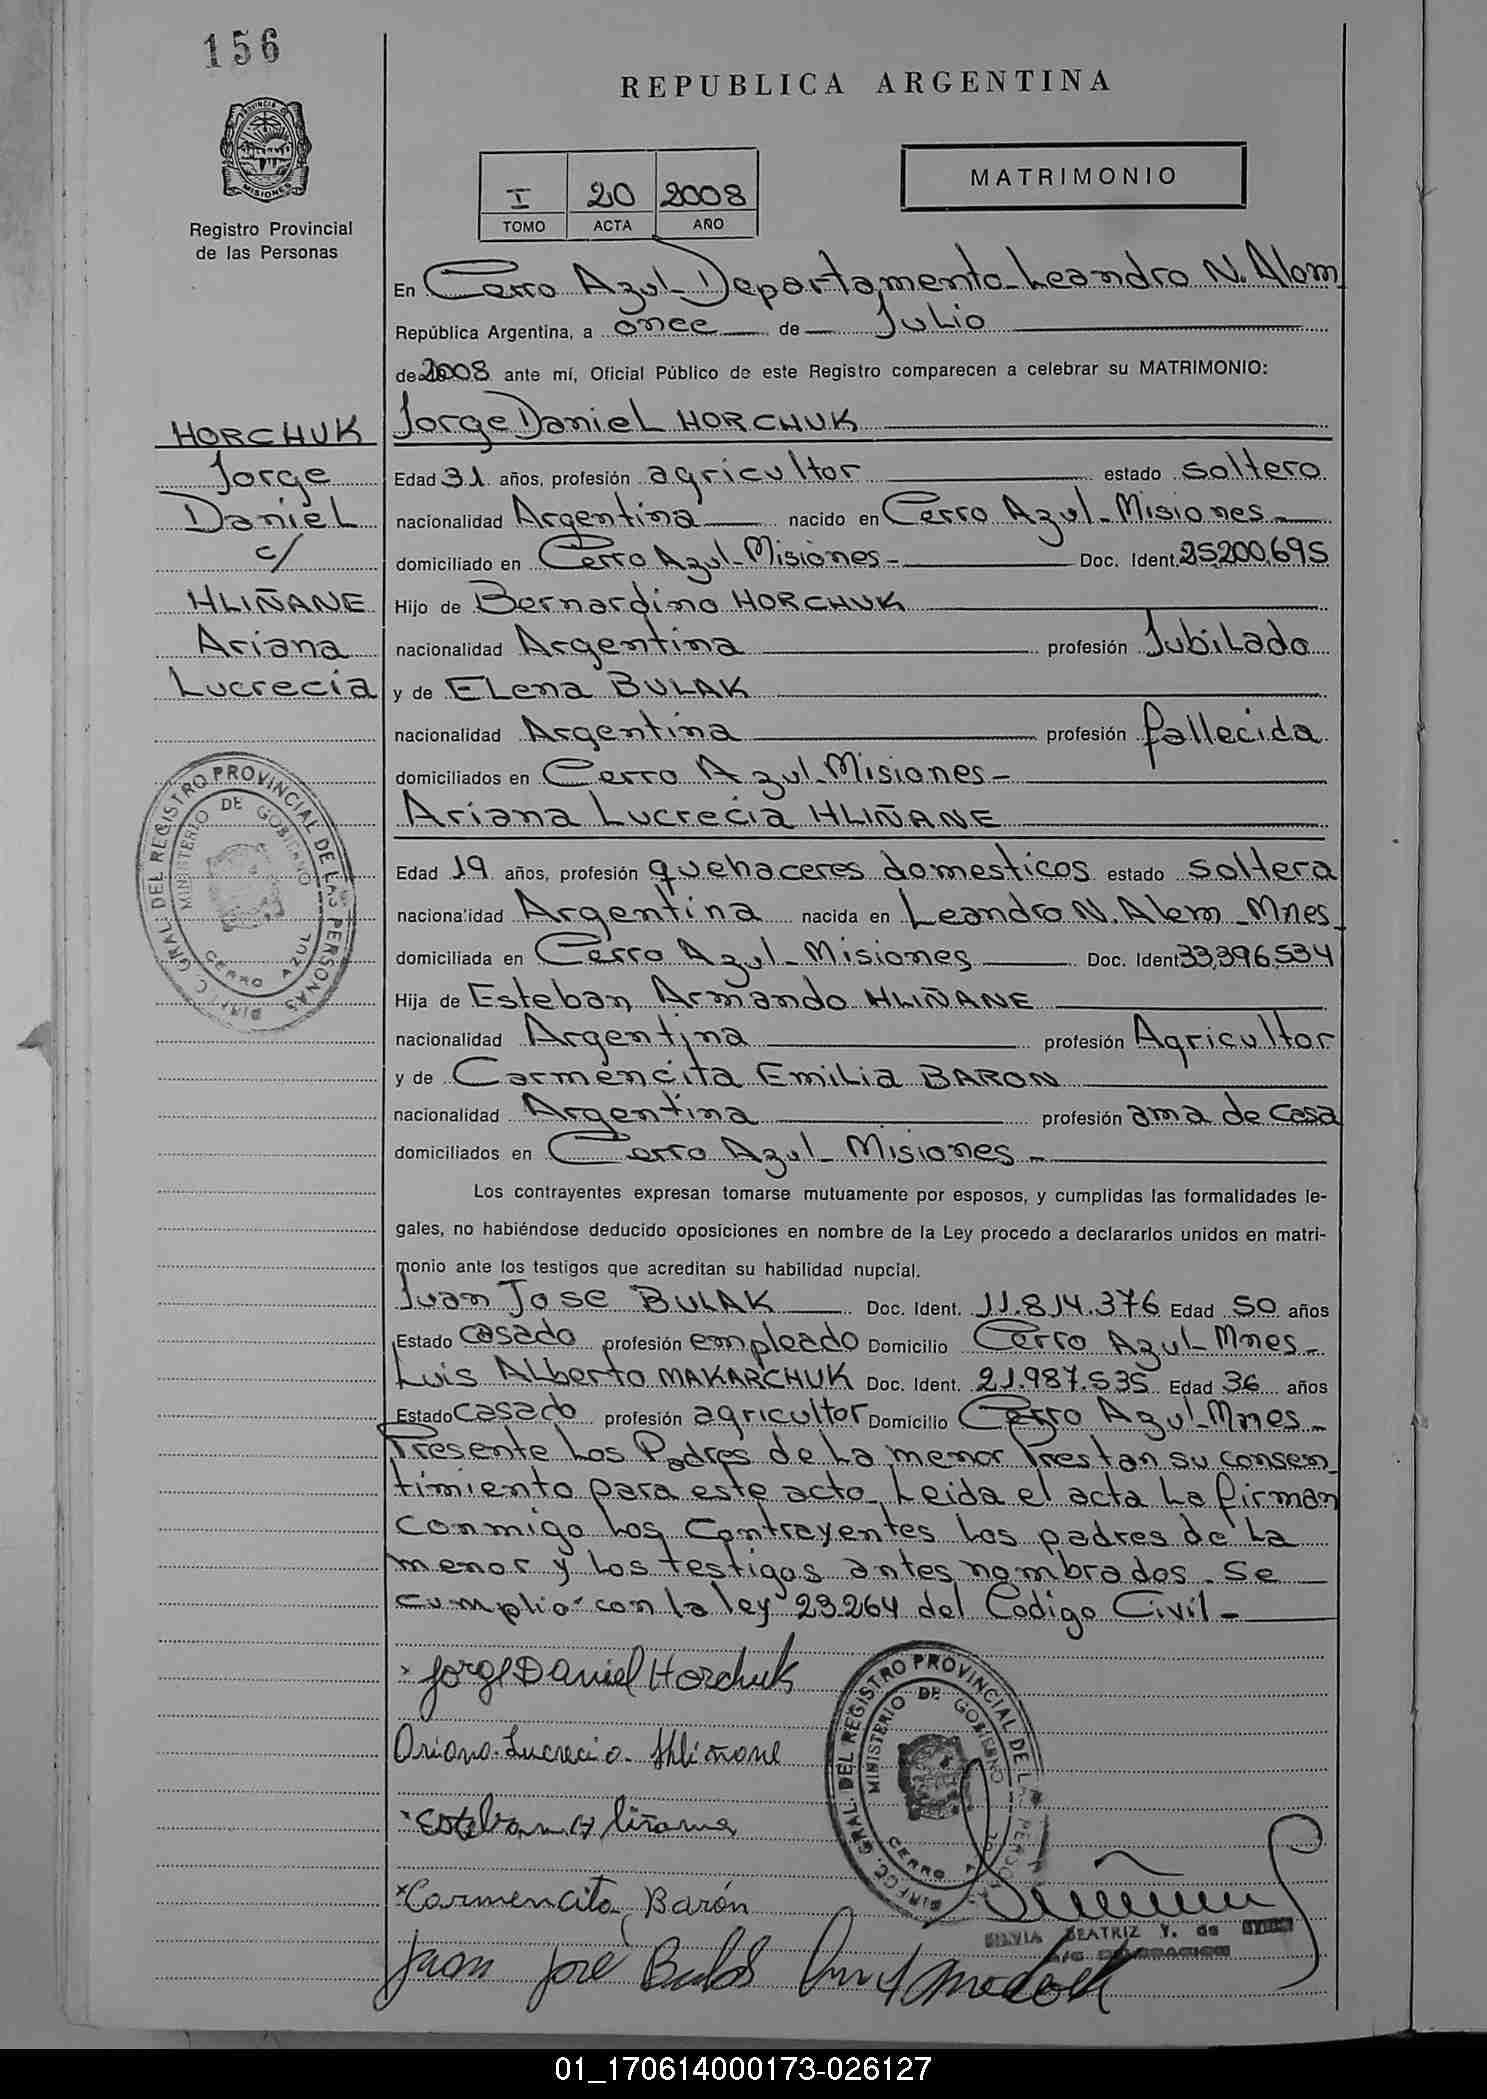 156
REPUBLICA ARGENTINA
PROVINCIA DE
MISIONES
Registro Provincial
de las Personas
I 20 2008
TOMO ACTA AÑO
MATRIMONIO
En Cerro Azul - Departamento Leandro N. Alem
República Argentina, a once de Julio
de 2008 ante mí, Oficial Público de este Registro comparecen a celebrar su MATRIMONIO:
HORCHUK
Jorge
Daniel
c/
HLIÑANE
Ariana
Lucrecia
Jorge Daniel HORCHUK
Edad 31 años, profesión agricultor estado soltero
nacionalidad Argentina nacido en Cerro Azul - Misiones -
domiciliado en Cerro Azul - Misiones - Doc. Ident. 25.200.695
Hijo de Bernardino HORCHUK
nacionalidad Argentina profesión Jubilado
y de Elena BULAK
nacionalidad Argentina profesión fallecida
domiciliados en Cerro Azul - Misiones -
Ariana Lucrecia HLIÑANE
Edad 19 años, profesión quehaceres domesticos estado soltera
nacionalidad Argentina nacida en Leandro N. Alem - Mnes -
domiciliada en Cerro Azul - Misiones Doc. Ident 33.396.534
Hija de Esteban Armando HLIÑANE
nacionalidad Argentina profesión Agricultor
y de Carmencita Emilia BARON
nacionalidad Argentina profesión ama de casa
domiciliados en Cerro Azul - Misiones -
Los contrayentes expresan tomarse mutuamente por esposos, y cumplidas las formalidades le-
gales, no habiéndose deducido oposiciones en nombre de la Ley procedo a declararlos unidos en matri-
monio ante los testigos que acreditan su habilidad nupcial.
Juan Jose BULAK Doc. Ident. 11.814.376 Edad 50 años
Estado casado profesión empleado Domicilio Cerro Azul - Mnes -
Luis Alberto MAKARCHUK Doc. Ident. 21.987.535 Edad 36 años
Estado casado profesión agricultor Domicilio Cerro Azul - Mnes -
Presente Los Padres de La menor Prestan su consen-
timiento para este acto - Leida el acta La firman
conmigo Los Contrayentes Los padres de La
menor y Los testigos antes nombrados - Se
cumplio con la ley 23.264 del Codigo Civil -
DIRECC. GRAL. DEL REGISTRO PROVINCIAL DE LAS PERSONAS
MINISTERIO DE GOBIERNO
CERRO AZUL
Jorge Daniel Horchuk
Ariana Lucrecia Hliñane
Esteban A Hliñane
Carmencita Barón
Juan José Bulak
DIRECC. GRAL. DEL REGISTRO PROVINCIAL DE LAS PERSONAS
MINISTERIO DE GOBIERNO
CERRO AZUL
SILVIA BEATRIZ V. de
01_170614000173-026127